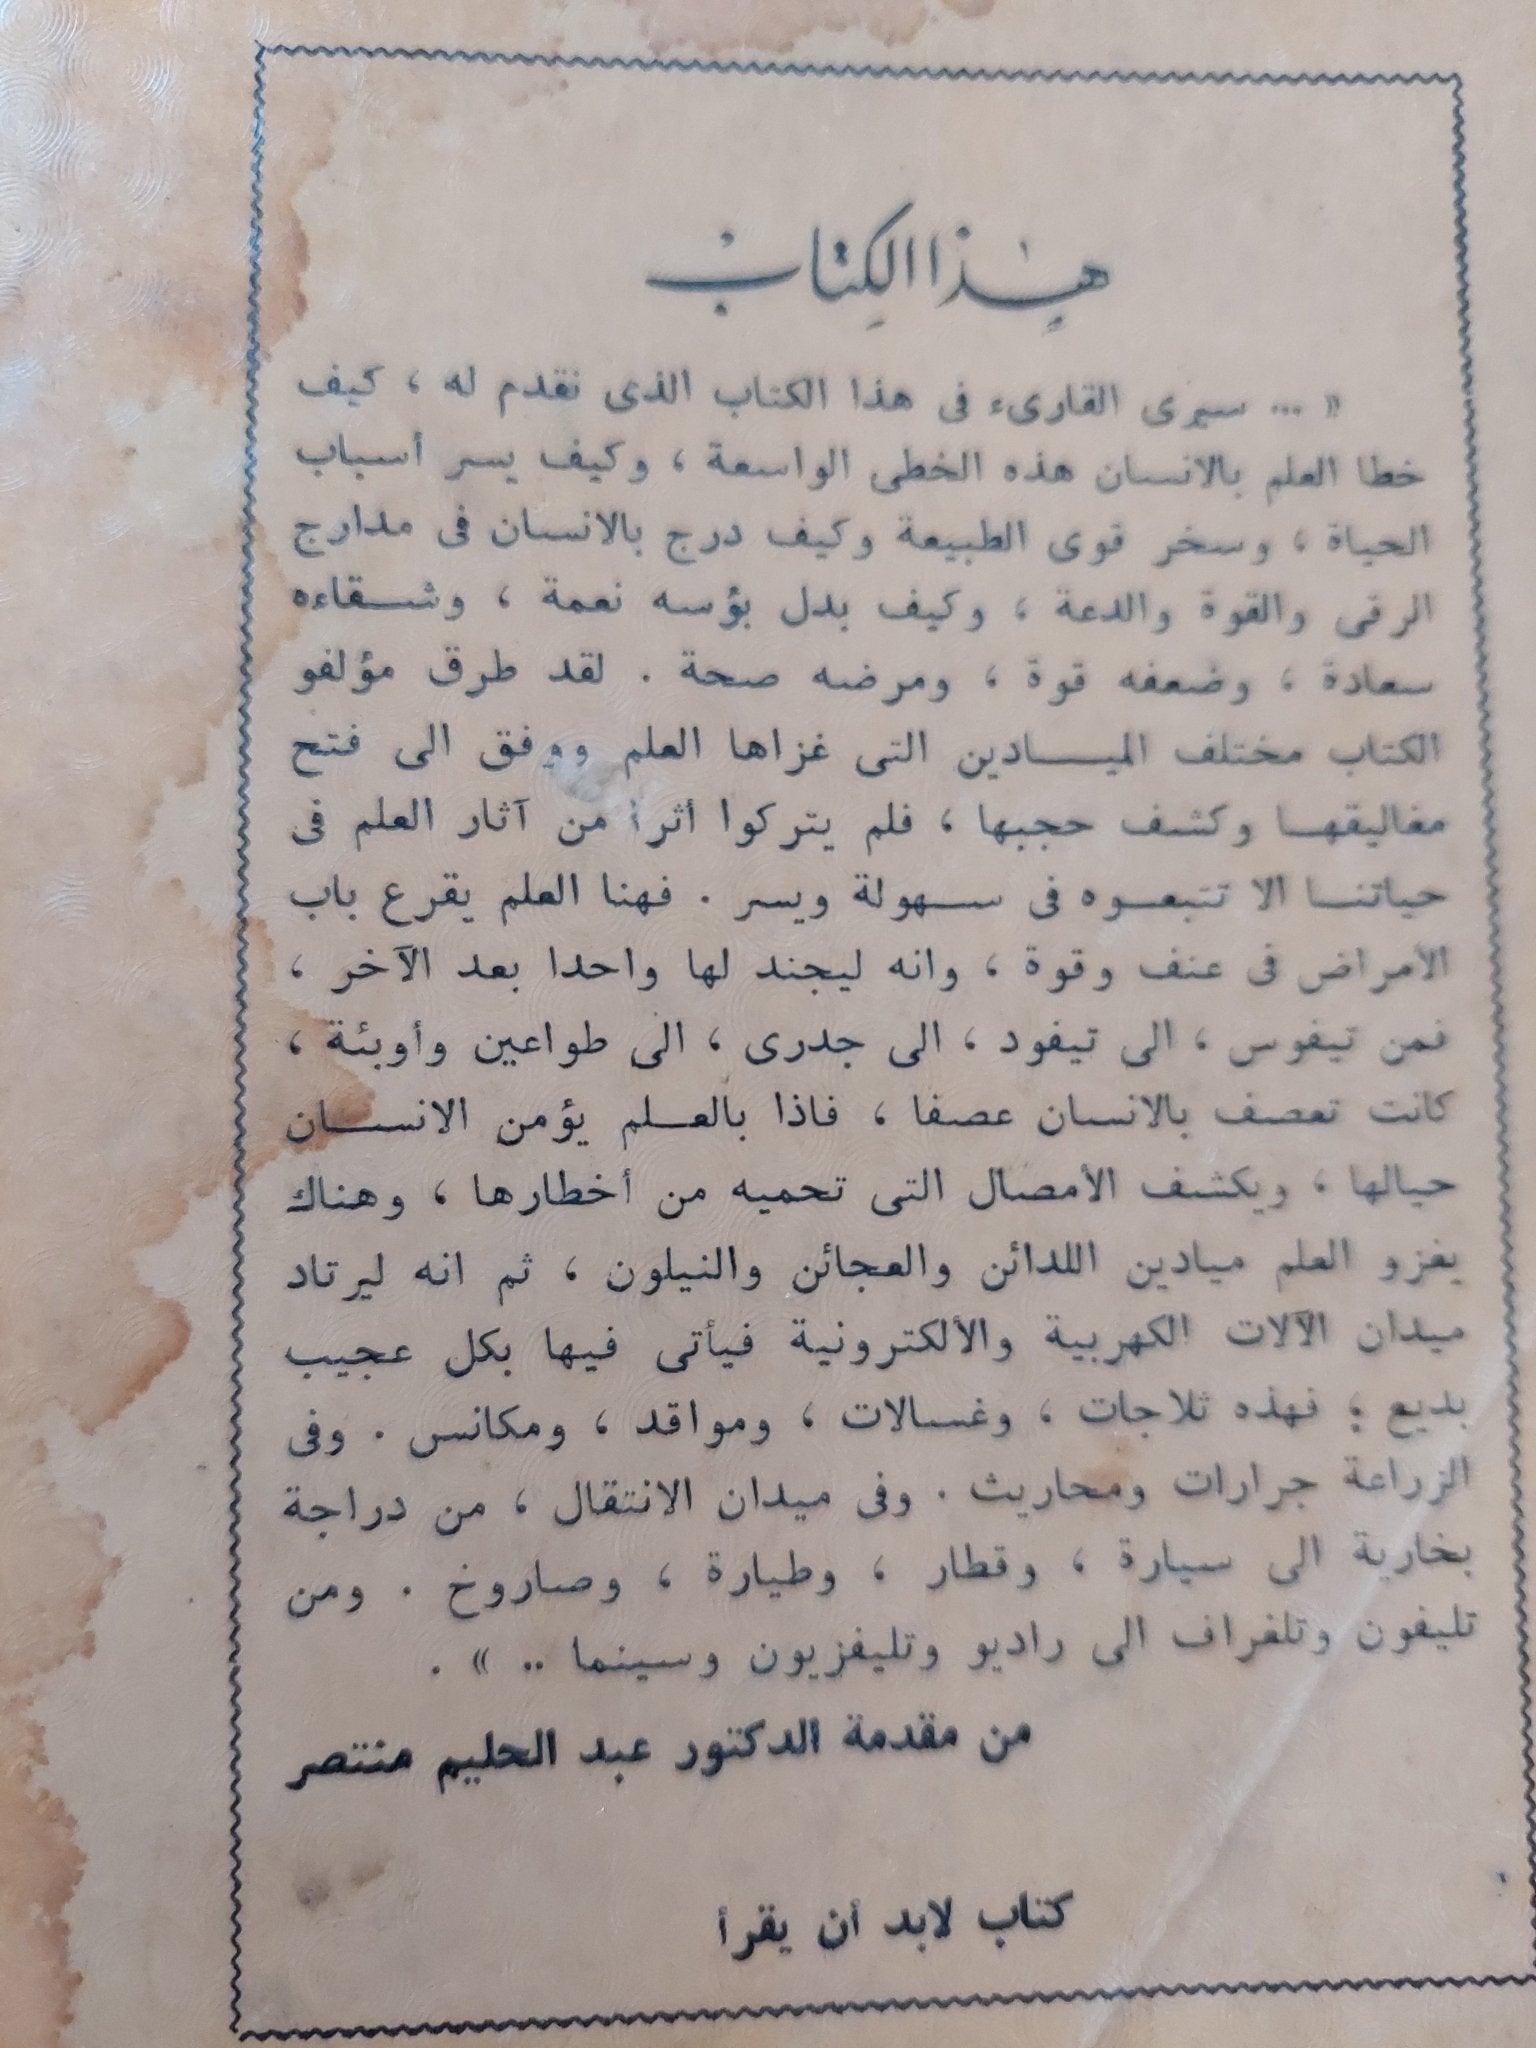 هذا الكتاب
« ... سيرى القارىء فى هذا الكتاب الذى نقدم له ، كيف
خطا العلم بالانسان هذه الخطى الواسعة ، وكيف يسر أسباب
الحياة ، وسخر قوى الطبيعة وكيف درج بالانسان فى مدارج
الرقى والقوة والدعة ، وكيف بدل بؤسه نعمة ، وشقاءه
سعادة ، وضعفه قوة ، ومرضه صحة . لقد طرق مؤلفو
الكتاب مختلف الميادين التى غزاها العلم ووفق الى فتح
مغاليقها وكشف حجبها ، فلم يتركوا أثرا من آثار العلم فى
حياتنا الا تتبعوه فى سهولة ويسر . فهنا العلم يقرع باب
الأمراض فى عنف وقوة ، وانه ليجند لها واحدا بعد الآخر ،
فمن تيفوس ، الى تيفود ، الى جدرى ، الى طواعين وأوبئة ،
كانت تعصف بالانسان عصفا ، فاذا بالعلم يؤمن الانسان
حيالها ، ويكشف الأمصال التى تحميه من أخطارها ، وهناك
يغزو العلم ميادين اللدائن والعجائن والنيلون ، ثم انه ليرتاد
ميدان الآلات الكهربية والألكترونية فيأتى فيها بكل عجيب
بديع ؛ فهذه ثلاجات ، وغسالات ، ومواقد ، ومكانس . وفى
الزراعة جرارات ومحاريث . وفى ميدان الانتقال ، من دراجة
بخارية الى سيارة ، وقطار ، وطيارة ، وصاروخ . ومن
تليفون وتلغراف الى راديو وتليفزيون وسينما .. » .
من مقدمة الدكتور عبد الحليم منتصر
كتاب لابد أن يقرأ